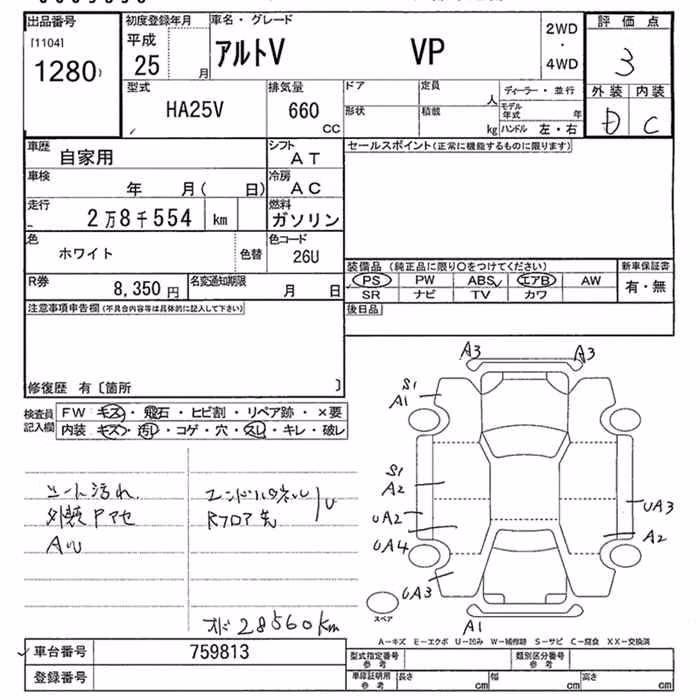 出品番号 初度登録年月 車名・グレード 2WD・4WD 評価点
[1104] 1280 平成 25 月 アルトV VP 3
型式 排気量 ドア 定員 人 ディーラー・並行 外装 内装
HA25V 660 CC 形状 積載 kg モデル年式 年 D C
ハンドル 左・右
車歴 自家用 シフト AT セールスポイント(正常に機能するものに限ります)
車検 年 月( 日) 冷房 AC
走行 2万8千554 km 燃料 ガソリン
色 ホワイト 色替 色コード 26U
装備品 (純正品に限り○をつけてください) 新車保証書
PS PW ABS エアB AW 有・無
SR ナビ TV カワ
R券 8,350円 名変通知期限 月 日
注意事項申告欄(不具合内容等は具体的に記入して下さい) 後日品
修復歴 有〔箇所 〕
検査員記入欄 FW キズ・飛石・ヒビ割・リペア跡・×要
内装 キズ・汚れ・コゲ・穴・スレ・キレ・破レ
A3 A3
S1
A1
S1
A2
UA2 UA3
UA4 A2
UA3
A1
スペア
シート汚れ エンドパネル
外装Pアセ Rフロア先 U
AW
オド 28560km
A−キズ E−エクボ U−凹み W−補修跡 S−サビ C−腐食 XX−交換済
車台番号 759813 型式指定番号 参考 類別区分番号 参考
登録番号 車庫証明用 参考 長さ cm 幅 cm 高さ cm